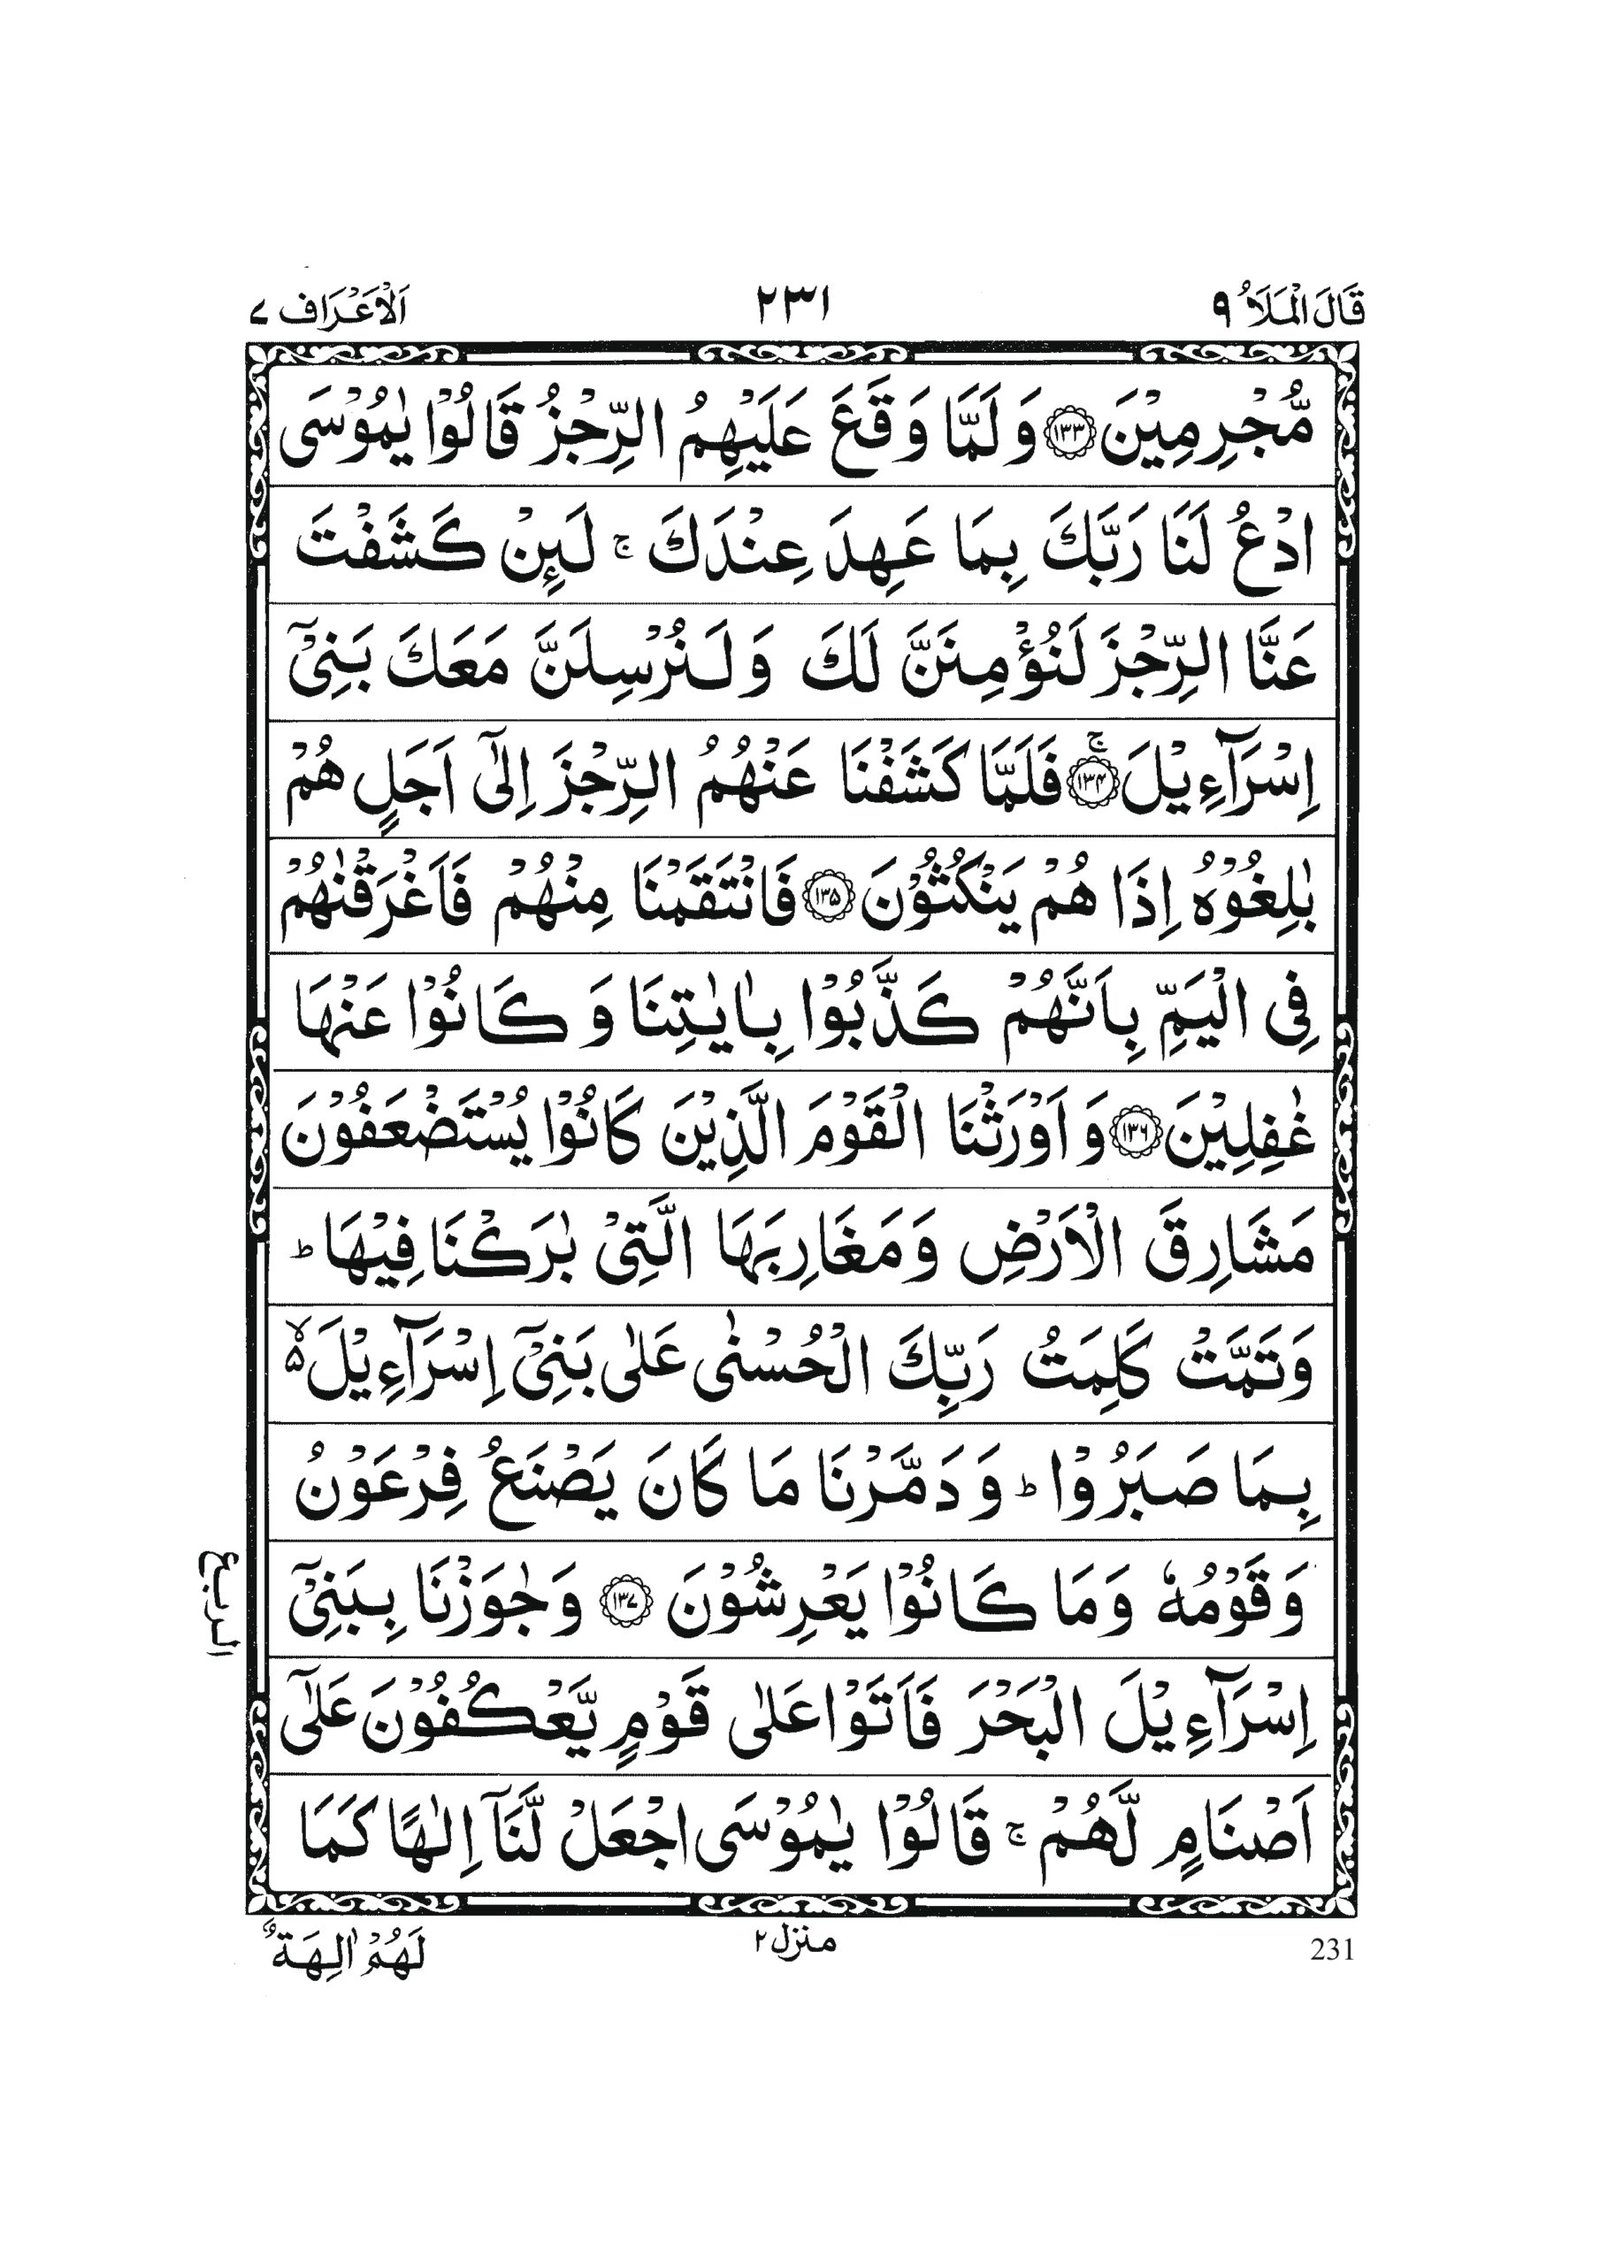 قَالَ الْمَلَاُ ٩ ٢٣١ اَلْاَعْرَاف ٧
مُّجْرِمِيْنَ ۝١٣٣ وَ لَمَّا وَقَعَ عَلَيْهِمُ الرِّجْزُ قَالُوْا يٰمُوْسَى
ادْعُ لَنَا رَبَّكَ بِمَا عَهِدَ عِنْدَكَ ۚ لَىِٕنْ كَشَفْتَ
عَنَّا الرِّجْزَ لَنُؤْمِنَنَّ لَكَ وَ لَنُرْسِلَنَّ مَعَكَ بَنِيْۤ
اِسْرَآءِيْلَ ۝١٣٤ۚ فَلَمَّا كَشَفْنَا عَنْهُمُ الرِّجْزَ اِلٰۤى اَجَلٍ هُمْ
بٰلِغُوْهُ اِذَا هُمْ يَنْكُثُوْنَ ۝١٣٥ فَانْتَقَمْنَا مِنْهُمْ فَاَغْرَقْنٰهُمْ
فِى الْيَمِّ بِاَنَّهُمْ كَذَّبُوْا بِاٰيٰتِنَا وَ كَانُوْا عَنْهَا
غٰفِلِيْنَ ۝١٣٦ وَ اَوْرَثْنَا الْقَوْمَ الَّذِيْنَ كَانُوْا يُسْتَضْعَفُوْنَ
مَشَارِقَ الْاَرْضِ وَ مَغَارِبَهَا الَّتِيْ بٰرَكْنَا فِيْهَا ؕ
وَ تَمَّتْ كَلِمَتُ رَبِّكَ الْحُسْنٰى عَلٰى بَنِيْۤ اِسْرَآءِيْلَ ۙ۵
بِمَا صَبَرُوْا ؕ وَ دَمَّرْنَا مَا كَانَ يَصْنَعُ فِرْعَوْنُ
وَ قَوْمُهٗ وَ مَا كَانُوْا يَعْرِشُوْنَ ۝١٣٧ وَ جٰوَزْنَا بِبَنِيْۤ
الربع
اِسْرَآءِيْلَ الْبَحْرَ فَاَتَوْا عَلٰى قَوْمٍ يَّعْكُفُوْنَ عَلٰۤى
اَصْنَامٍ لَّهُمْ ۚ قَالُوْا يٰمُوْسَى اجْعَلْ لَّنَاۤ اِلٰهًا كَمَا
231 منزل ٢ لَهُمْ اٰلِهَةٌ